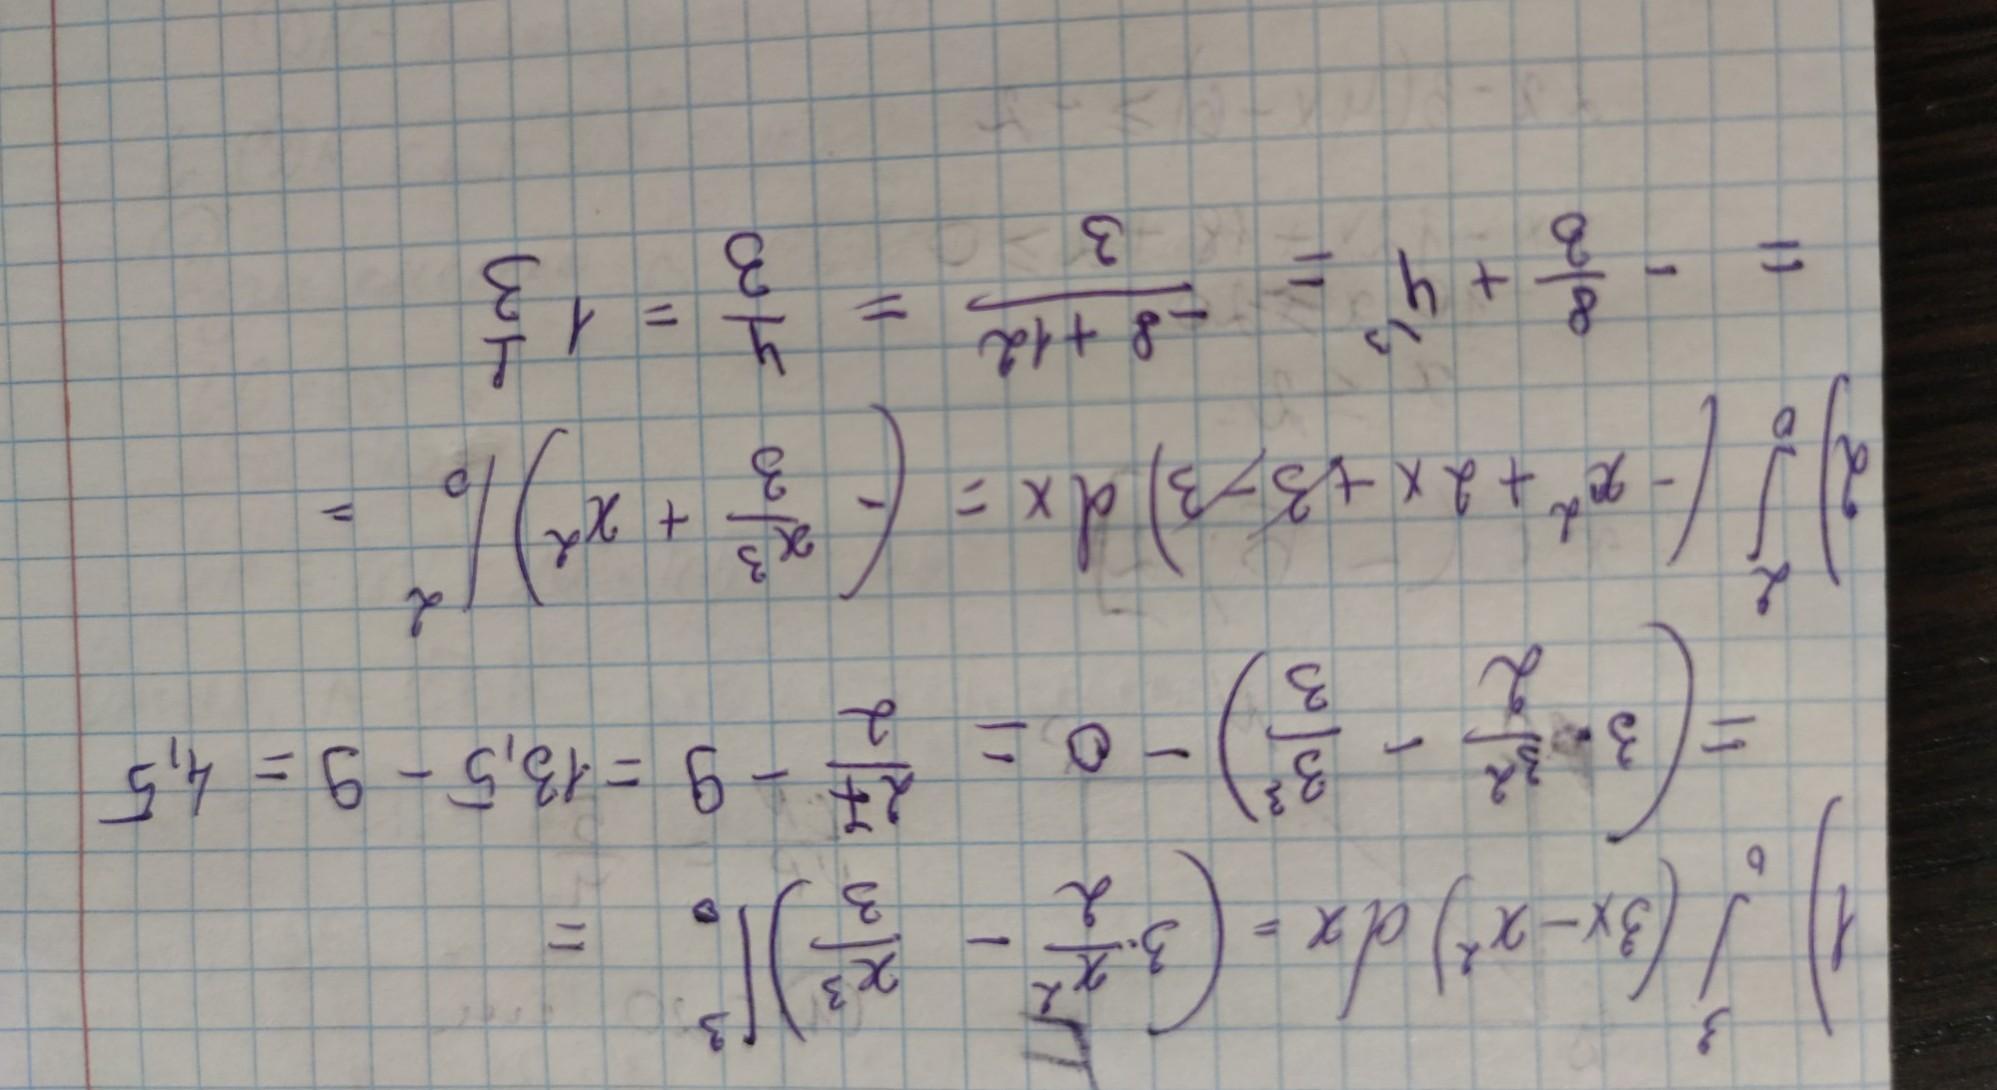 1) ∫₀³ (3x − x²) dx = (3·x²/2 − x³/3)|₀³ =
= (3·3²/2 − 3³/3) − 0 = 27/2 − 9 = 13,5 − 9 = 4,5
2) ∫₀² (−x² + 2x + 3 − 3) dx = (−x³/3 + x²)|₀² =
= −8/3 + 4 = (−8 + 12)/3 = 4/3 = 1 1/3